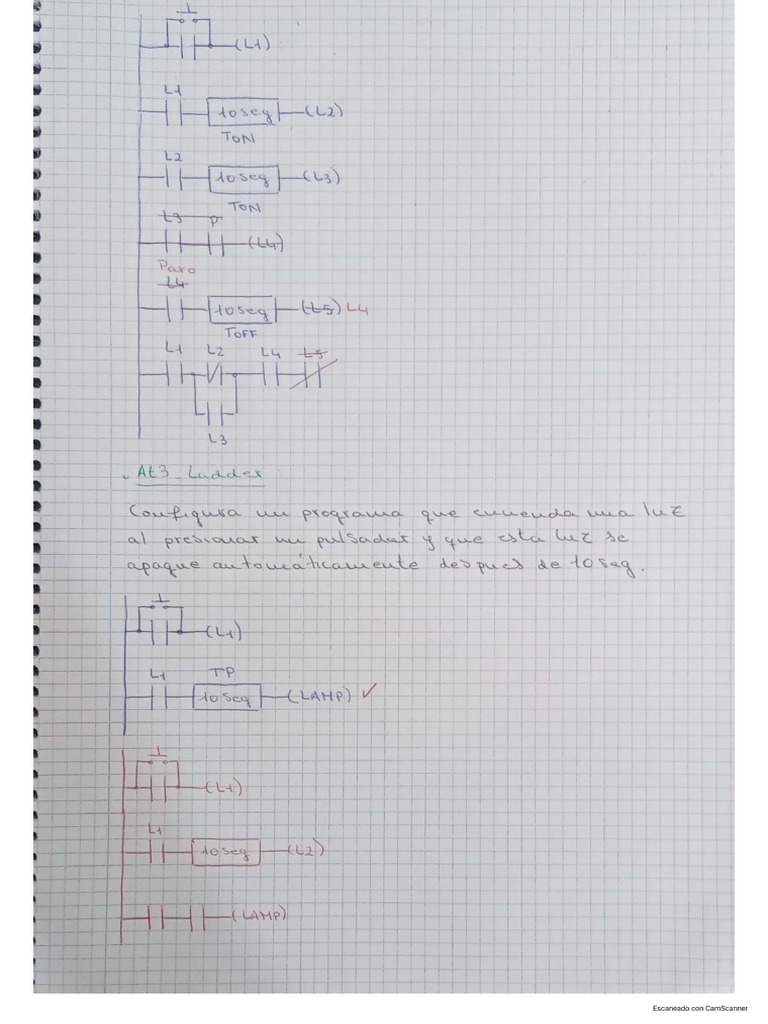 (L1)
L1
10 seg
(L2)
TON
L2
10 seg
(L3)
TON
t3 P
(L4)
Paro
L4
10 seg
(t5) L4
TOFF
L1 L2 L4 t5
L3
. At3_Ladder
Configura un programa que encienda una luz
al presionar un pulsador y que esta luz se
apague automáticamente despues de 10 seg.
(L1)
L1 TP
10 seg
(LAMP) ✓
(L1)
L1
10 seg
(L2)
(LAMP)
Escaneado con CamScanner